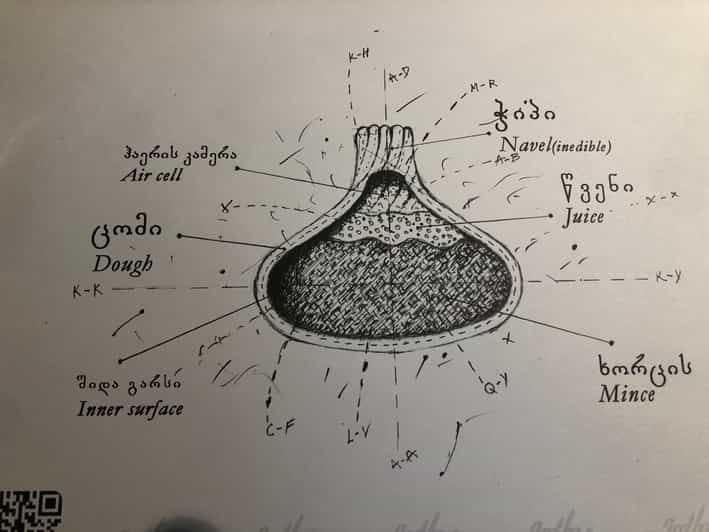 K-H
A-D
M-R
ჭიპი
Navel(inedible)
A-B
ჰაერის კამერა
Air cell
წვენი
Juice
X-X
X
ცომი
Dough
K-K
K-Y
X
ხორცის
Mince
შიდა გარსი
Inner surface
Q-Y
C-F
L-V
A-A